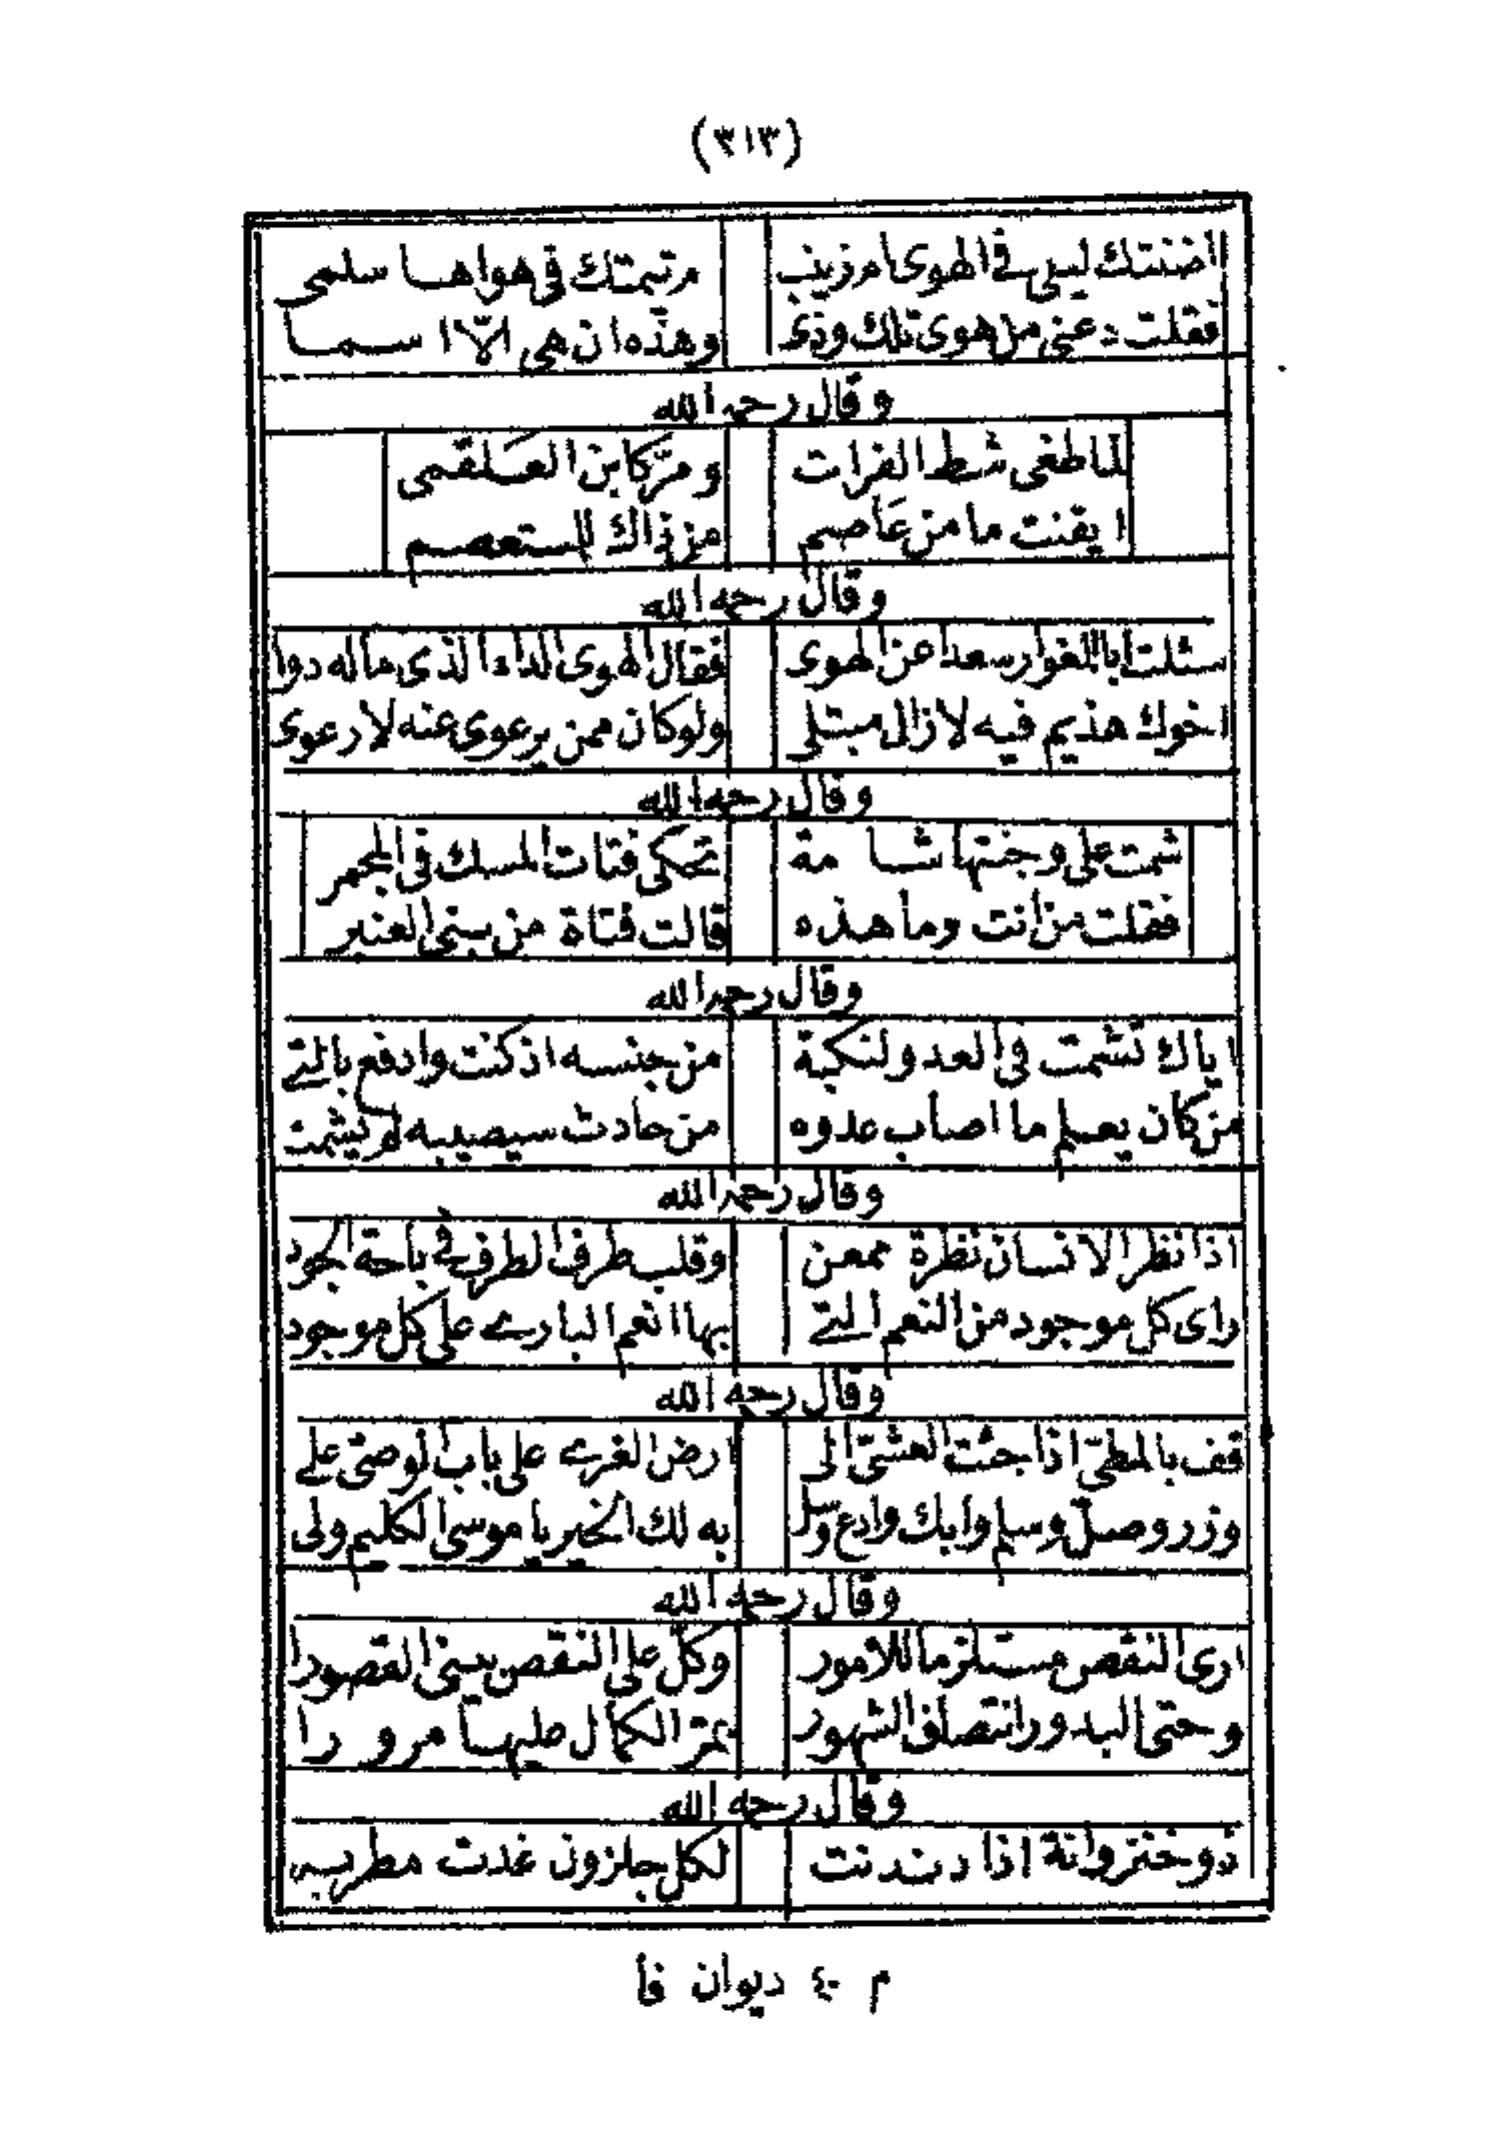 (٣١٣)
اضنتك ليلى فى الهوى ام زينب ام تيمتك فى هواها سلمى
فقلت دعنى من هوى تلك وذى وهذه ان هى الّا اسما
وقال رحمه الله
لما طغى شط الفرات ومرّ كابن العَلقمى
ايقنت ما من عَاصم من ذاك للمستعصم
وقال رحمه الله
سئلت ابا المغوار سعدا عن الهوى فقال الهوى الداء الذى ماله دوا
اخوك هذيم فيه لازال مبتلى ولوكان ممن يرعوى عنه لارعوى
وقال رحمه الله
شمت على وجنتها شامة تحكى فتات المسك فى المجمر
فقلت من انت وما هذه قالت فتاة من بنى العنبر
وقال رحمه الله
اياك تشمت فى العدو لنكبة من جنسه اذ كنت وادفع بالتى
من كان يعلم ما اصاب عدوه من حادث سيصيبه لم يشمت
وقال رحمه الله
اذا نظر الانسان نظرة ممعن وقلب طرف الطرف فى باحة الجود
راى كل موجود من النعم التى بها انعم البارى على كل موجود
وقال رحمه الله
قف بالمطىّ اذا جئت العشىّ الى ارض الغرى على باب الوصىّ على
وزر وصلّ وسلم وابك وادع وسل به لك الخير يا موسى الكليم ولى
وقال رحمه الله
ارى النقص مستلزما للامور وكلّ على النقص يبنى القصورا
وحتى البدور انتصاف الشهور يمرّ الكمال عليها مرورا
وقال رحمه الله
ذو خنزوانة اذا دندنت لكل حلزون غدت مطربه
م ٤٠ ديوان فا